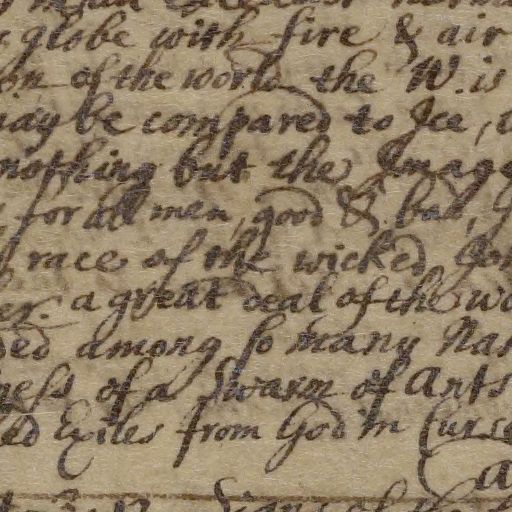 globe with fire & air
of the world the W. is
may be compared to Ice,
nothing but the Image
for all men, good & bad,
race of the wicked
a great deal of the wo
ded among so many Nat
nest of a Swarm of Ants
Exiles from God in Curse